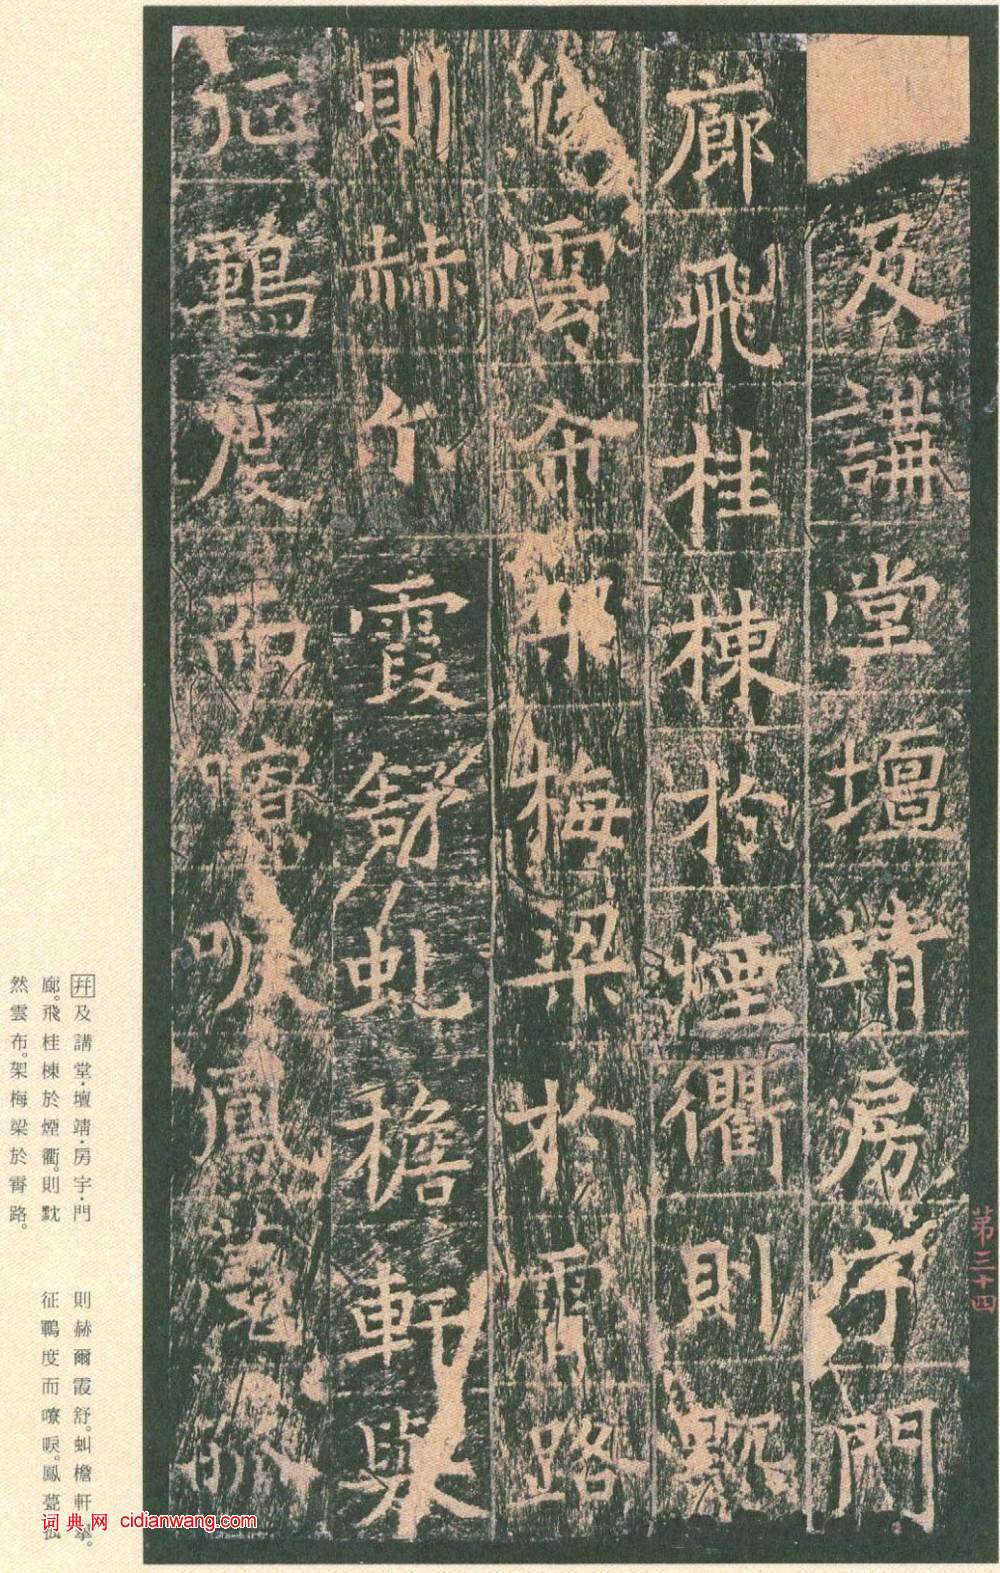 及講堂壇靖房宇門
廊飛桂棟於煙衢則黕
然雲布架梅梁於霄路
則赫尒霞舒虬檐軒舉
征鶤度而嘹唳鳳甍孤
第三十四
幷及講堂·壇靖·房宇·門
廊。飛桂棟於煙衢。則黕
然雲布。架梅梁於霄路。
則赫爾霞舒。虯檐軒舉。
征鶤度而嘹唳。鳳甍孤
词典网 cidianwang.com